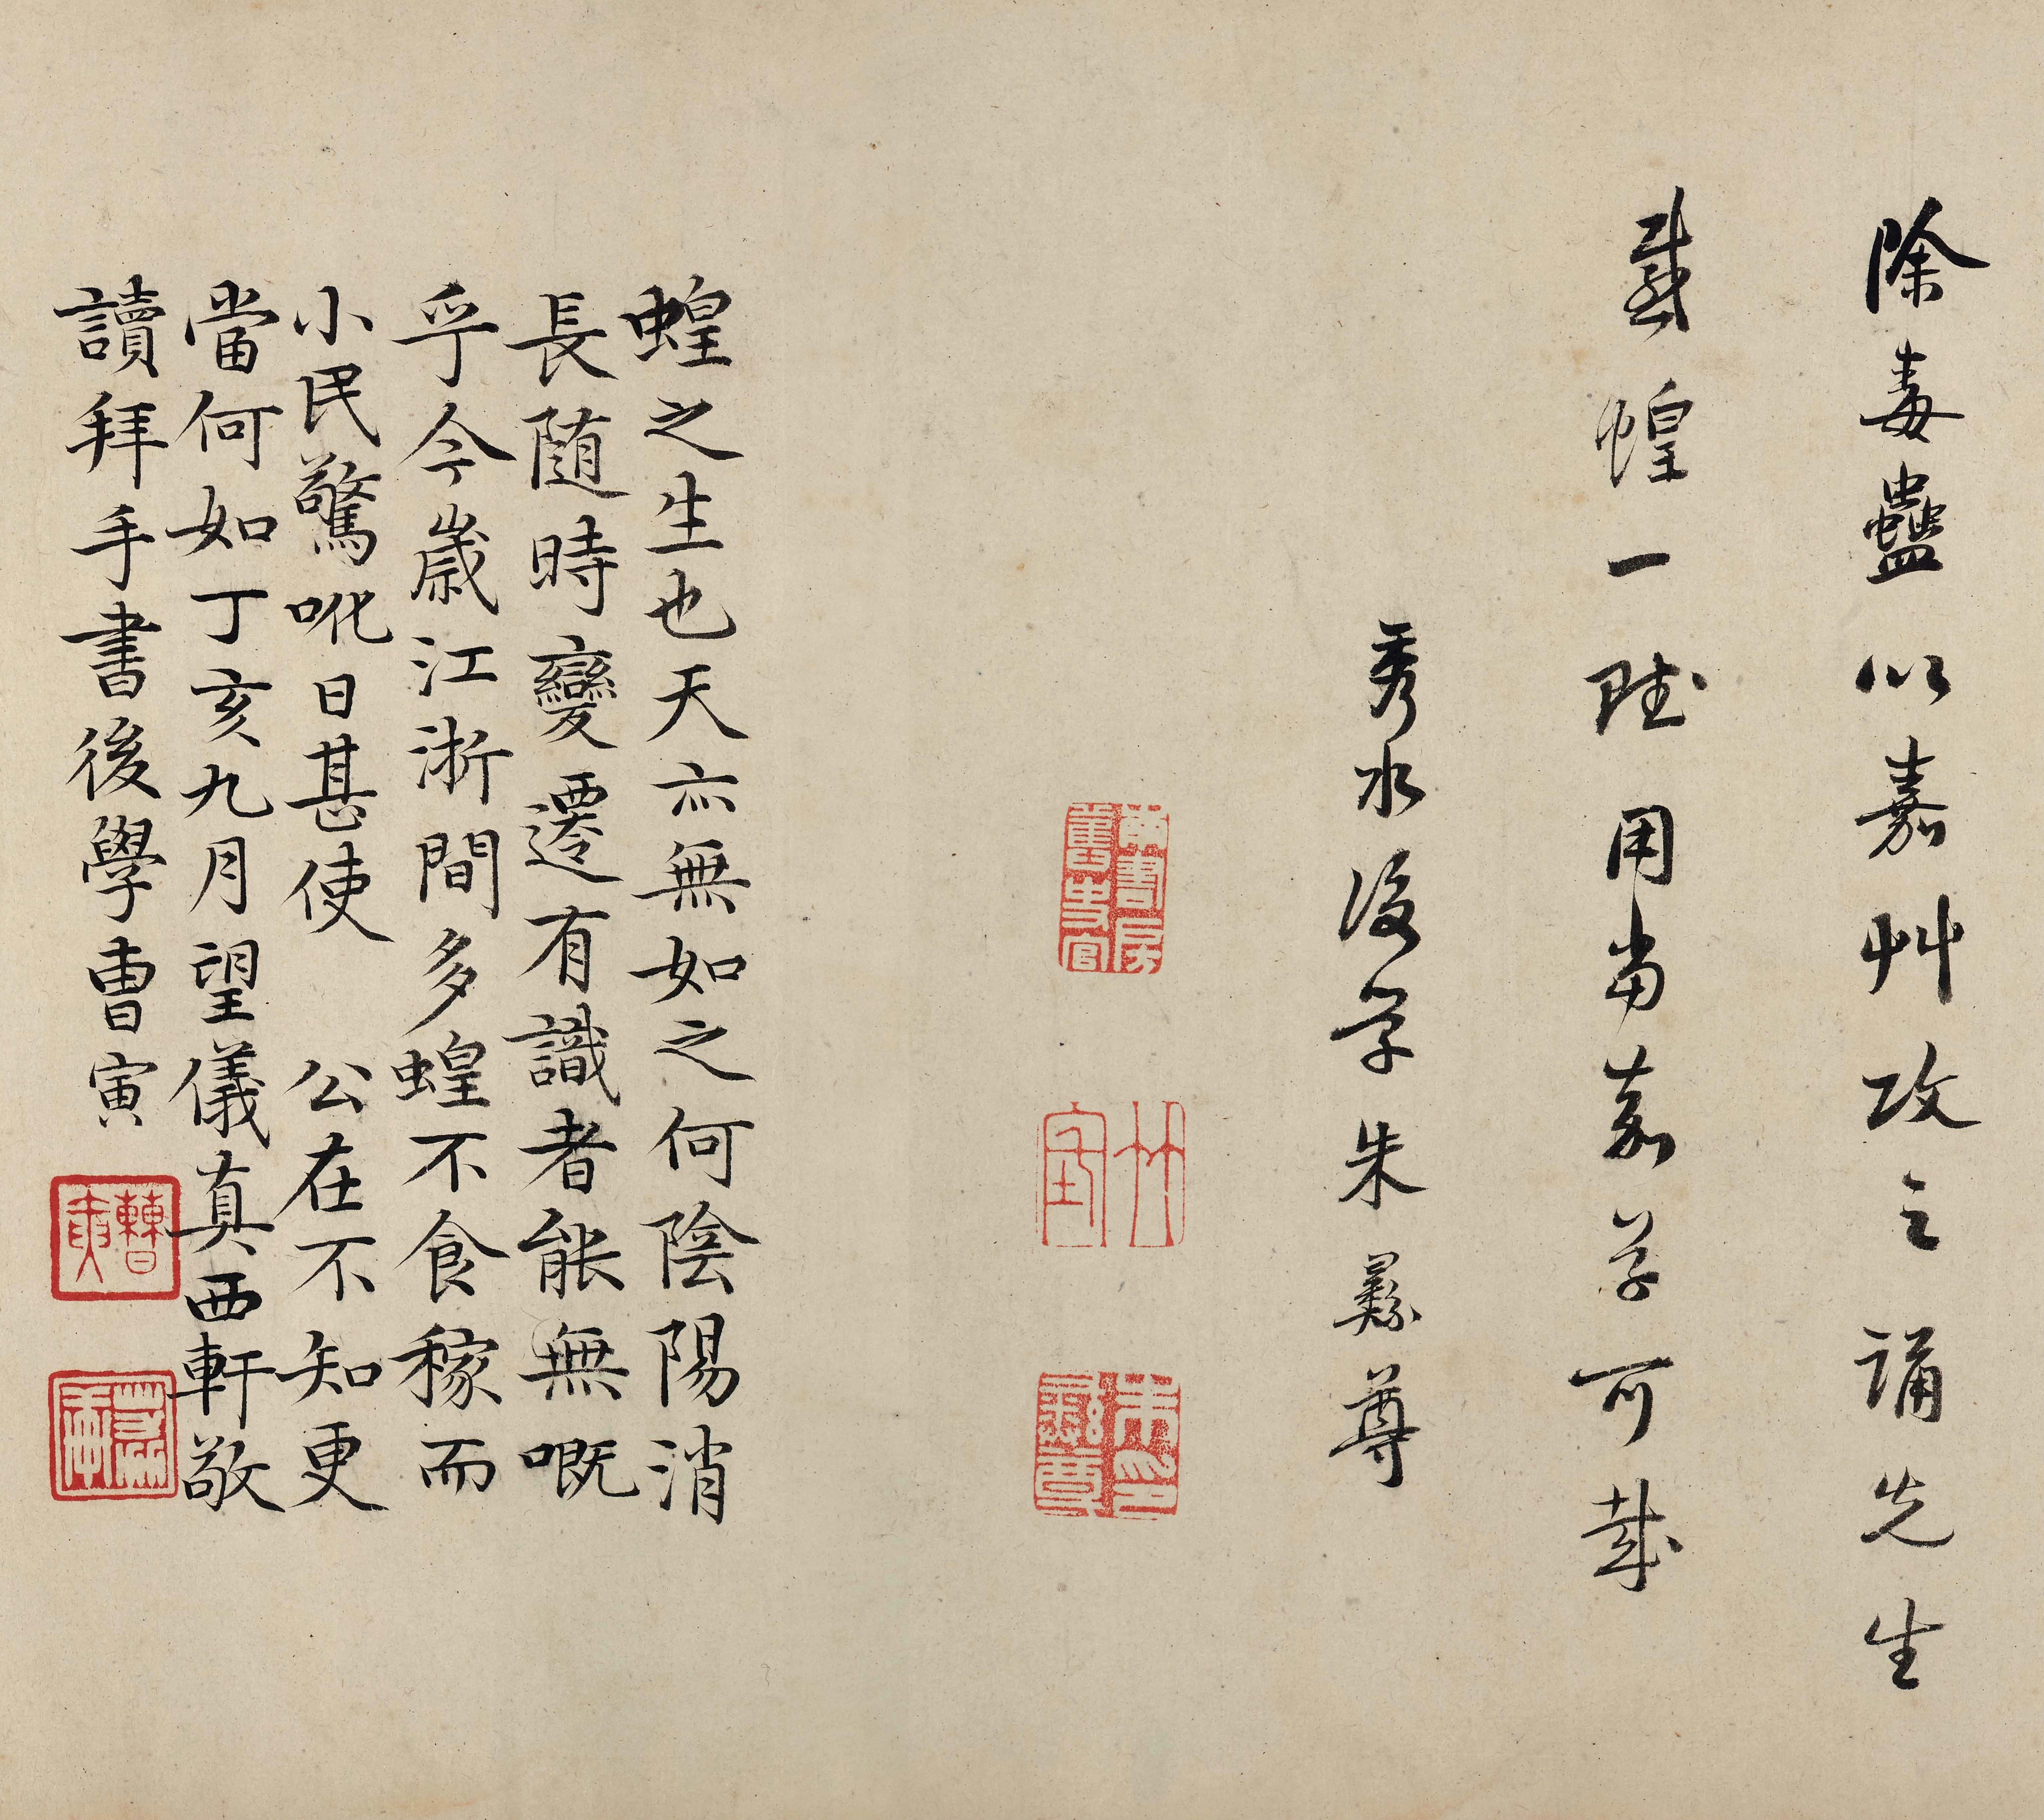 除毒蠱以嘉艸攻之誦先生
感蝗一賦用當嘉草可哉
秀水後學朱彝尊
南書房舊史官
竹垞
朱彝尊
蝗之生也天亦無如之何陰陽消
長随時變遷有識者能無嘅
乎今歲江淅間多蝗不食稼而
小民驚吪日甚使 公在不知更
當何如丁亥九月望儀真西軒敬
讀拜手書後學曺寅